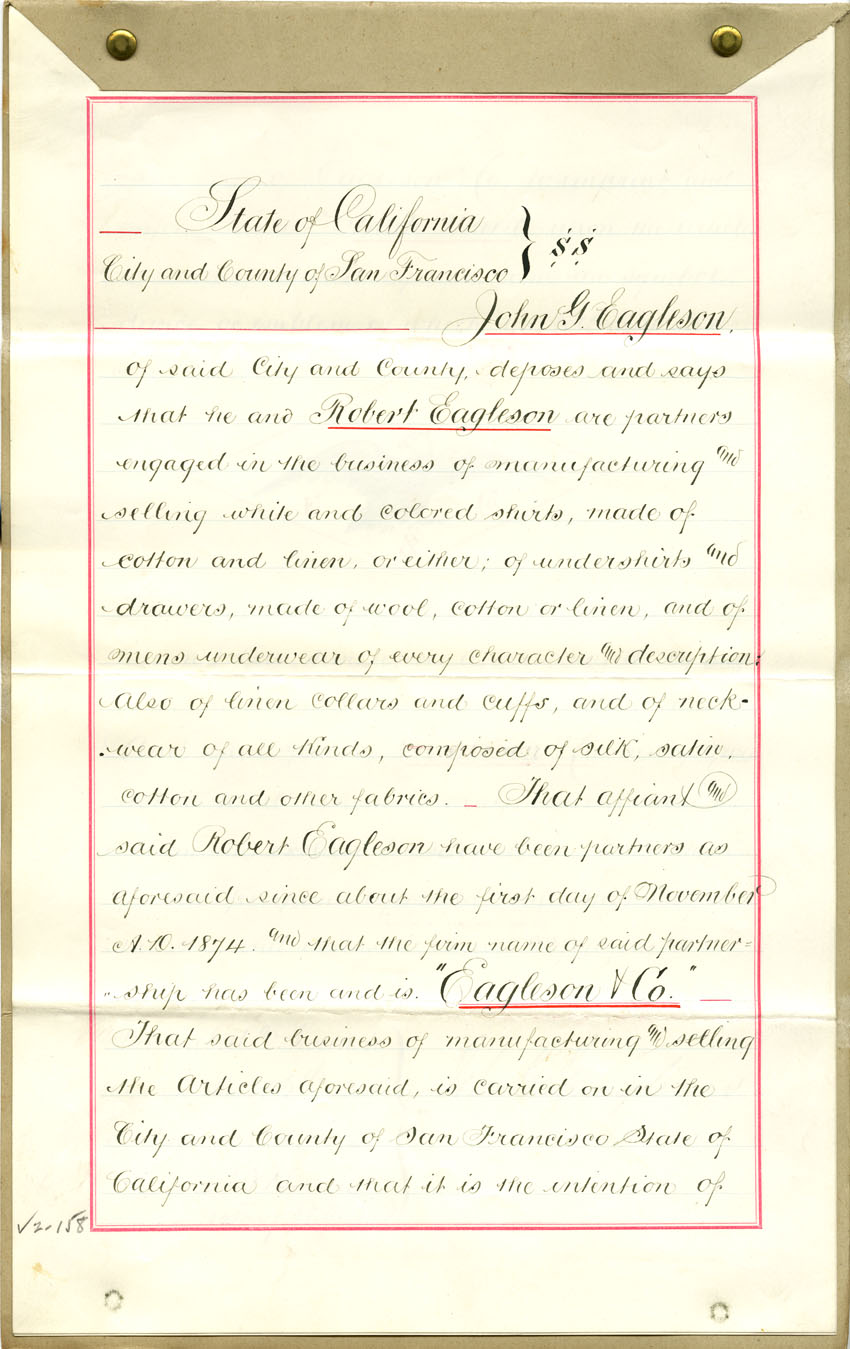 State of California
City and County of San Francisco } s.s.
John G. Eagleson,
of said City and County, deposes and says
that he and Robert Eagleson are partners
engaged in the business of manufacturing and
selling white and colored shirts, made of
cotton and linen, or either; of undershirts and
drawers, made of wool, cotton or linen, and of
mens underwear of every character and description:
Also of linen collars and cuffs, and of neck-
-wear of all kinds, composed of silk, satin,
cotton and other fabrics. _ That affiant and
said Robert Eagleson have been partners as
aforesaid since about the first day of November
A.D. 1874. and that the firm name of said partner=
"ship has been and is. "Eagleson & Co." _
That said business of manufacturing and selling
the Articles aforesaid, is carried on in the
City and County of San Francisco State of
California and that it is the intention of
√2-158